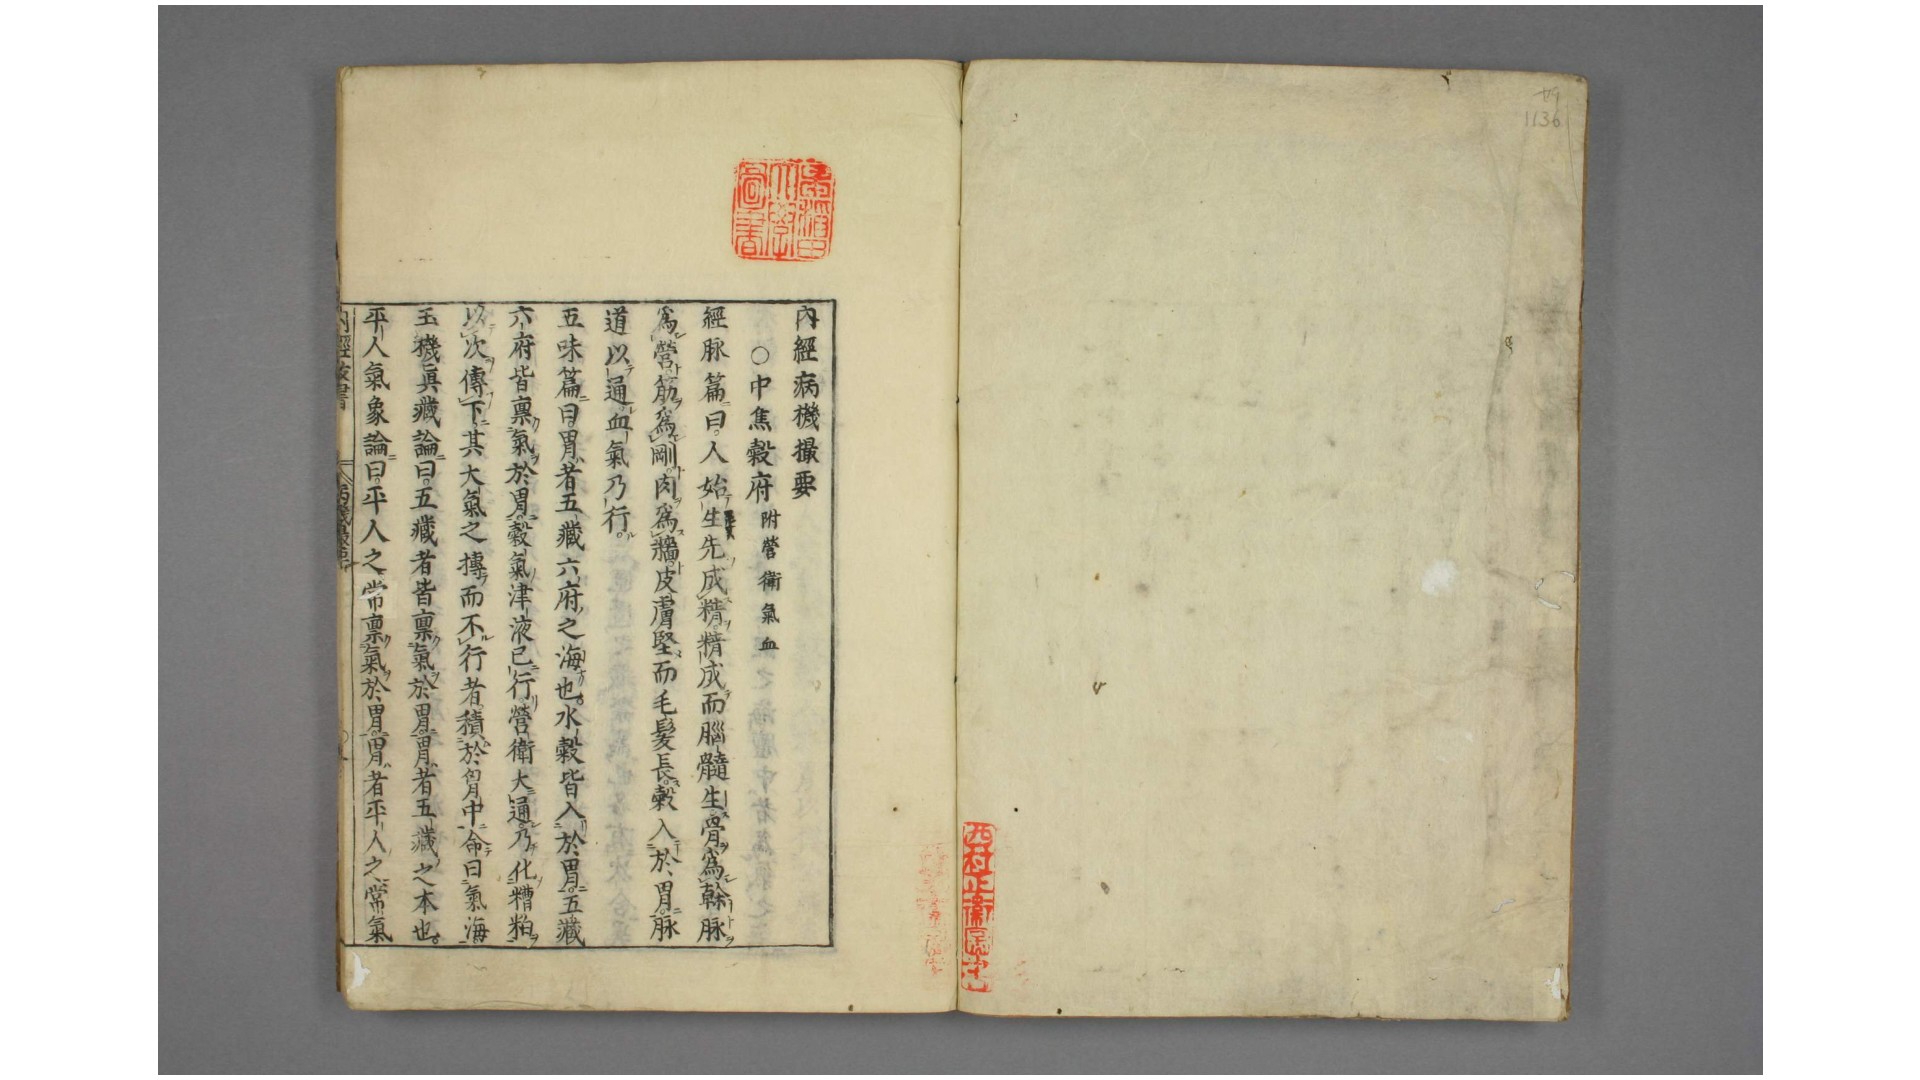 內經病機撮要
○中焦穀府 附營衛氣血
經脉篇曰人始生先成精精成而腦髓生骨爲幹脉
爲營筋爲剛肉爲牆皮膚堅而毛髮長穀入於胃脉
道以通血氣乃行
五味篇曰胃者五藏六府之海也水穀皆入於胃五藏
六府皆禀氣於胃穀氣津液已行營衛大通乃化糟粕
以次傳下其大氣之摶而不行者積於胷中命曰氣海
玉機眞藏論曰五藏者皆禀氣於胃胃者五藏之本也
平人氣象論曰平人之常禀氣於胃胃者平人之常氣
早稲田
大学
圖書
1136